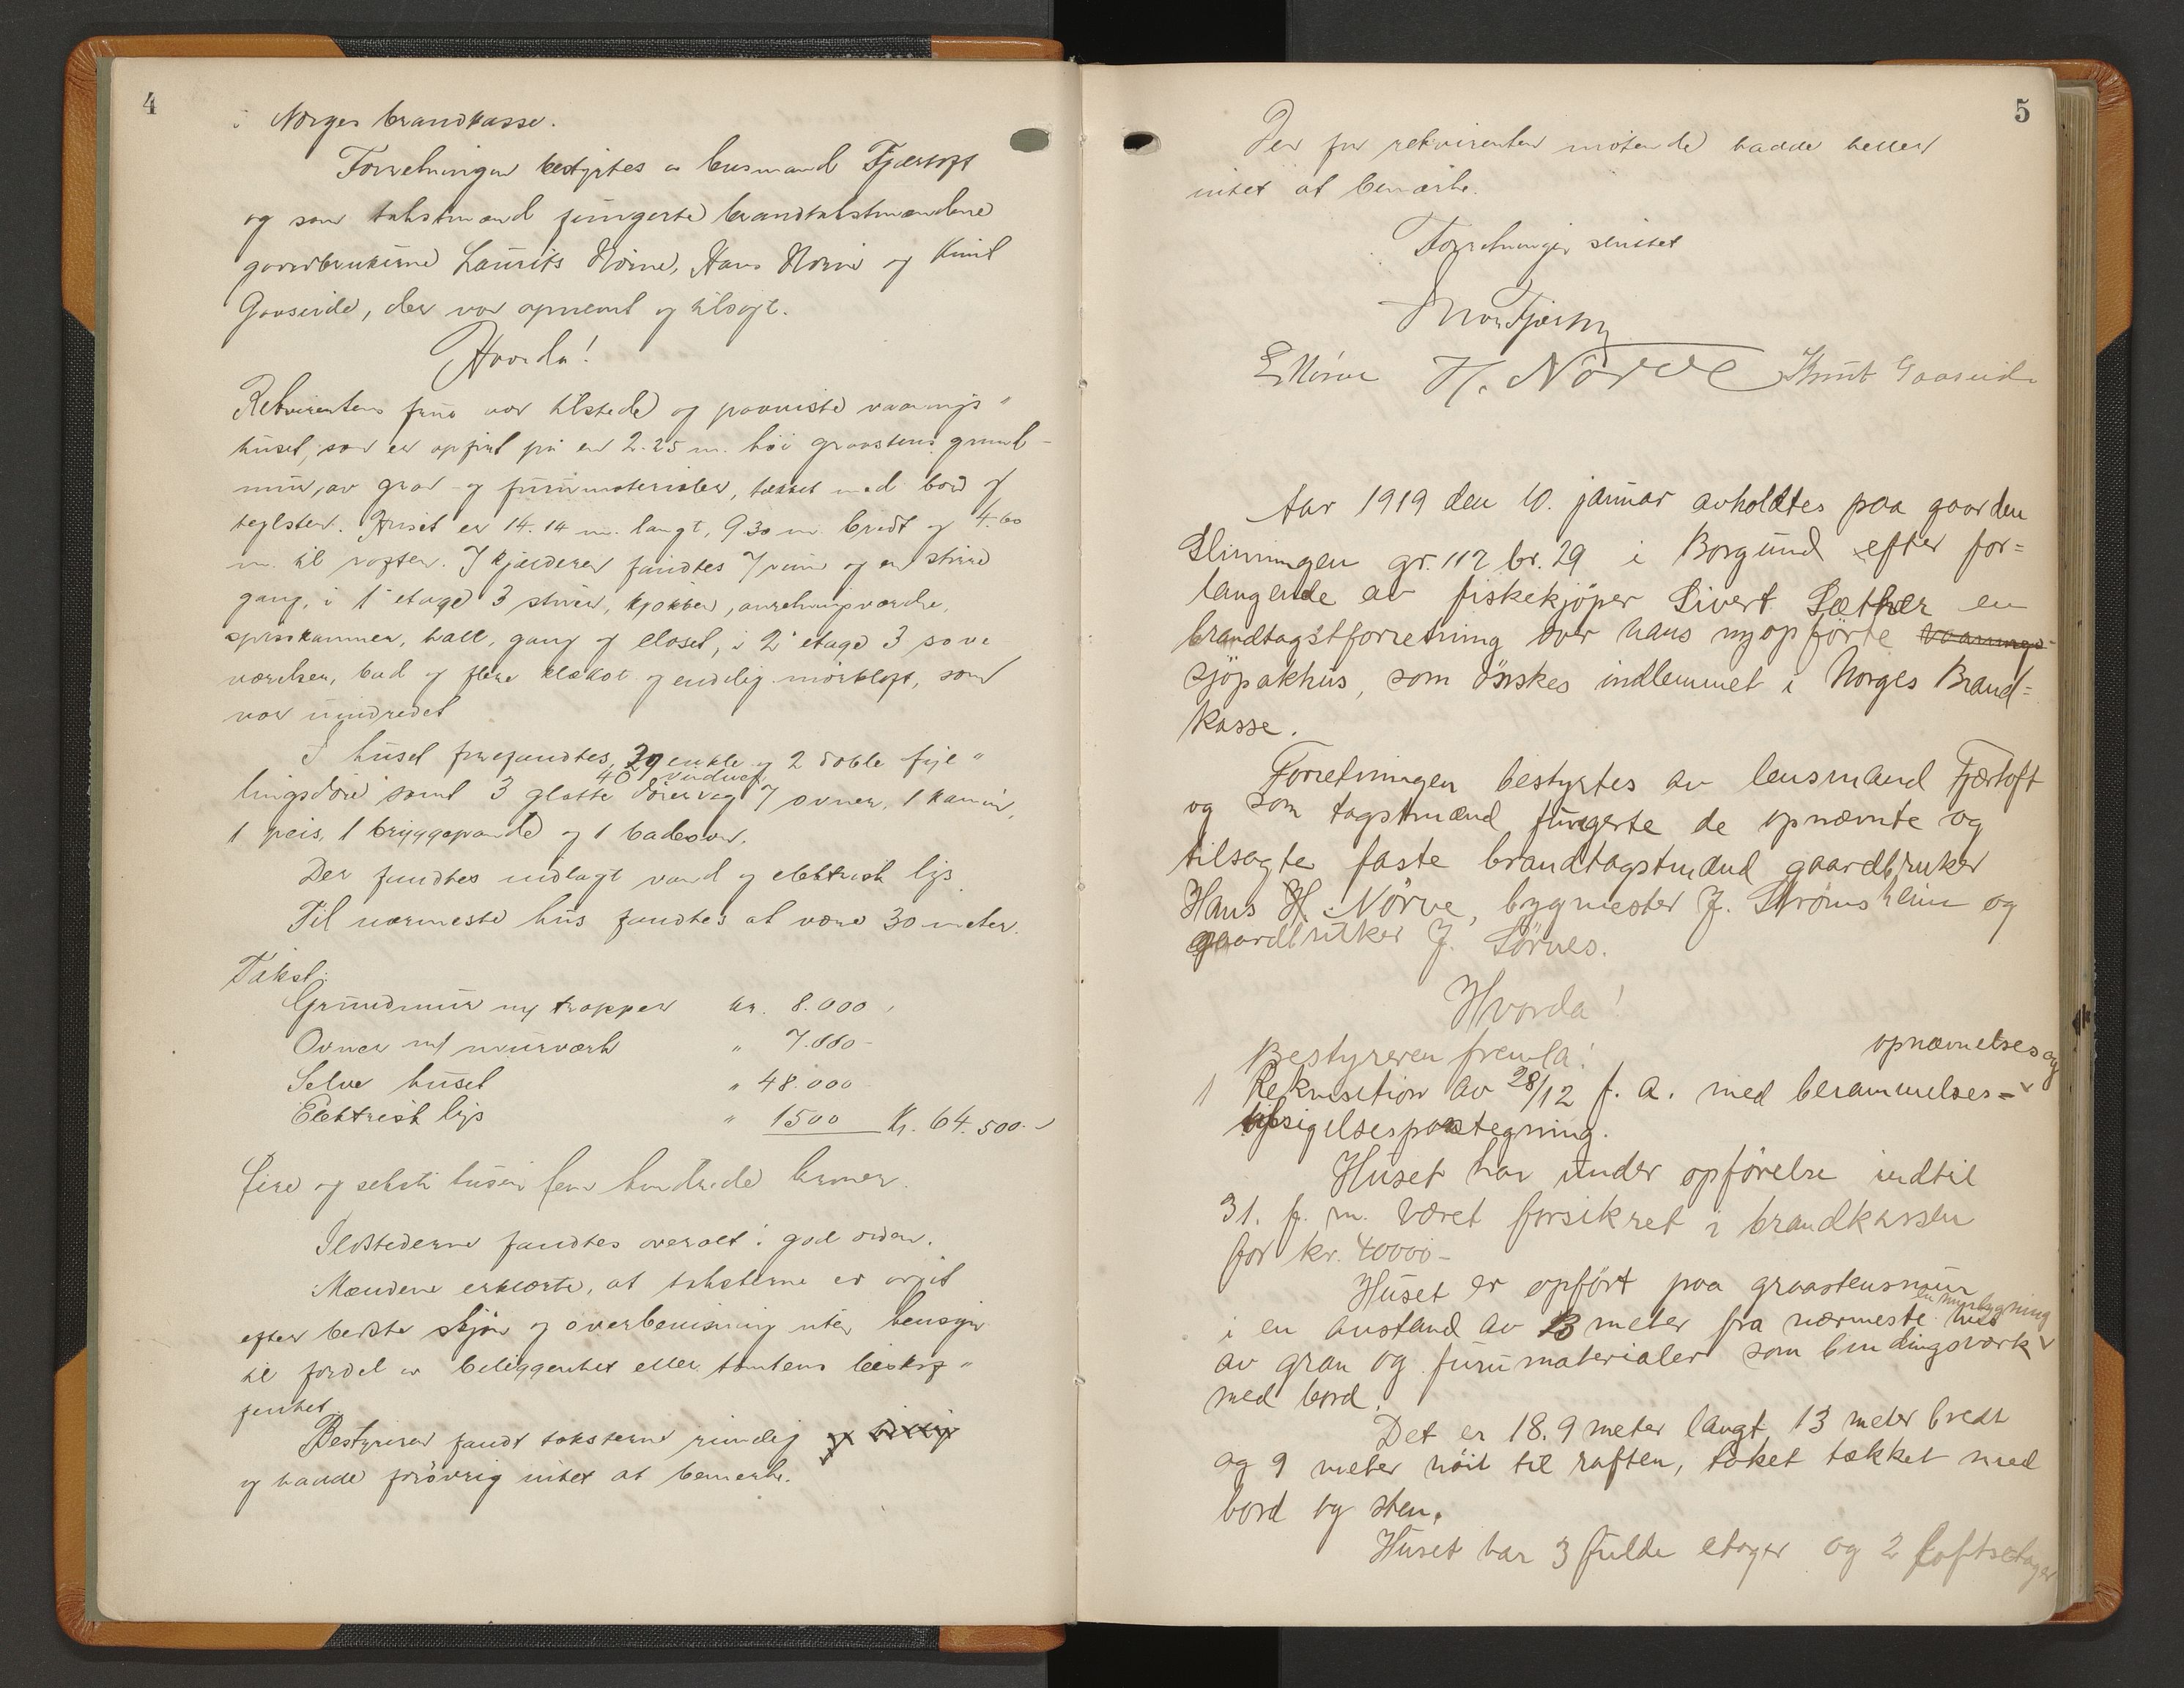 4
i Norges brandkasse.
Forretningen bestyrtes av lensmand Fjærtoft
og som takstmænd fungerte brandtakstmændene
gaardbrukerne Laurits Nörve, Hans Nörve og Knut
Gaaseide, der var opnævnt og tilsagt.
Hvorda!
Rekvirentens frue var tilstede og paaviste vaanings-
huset, som er opført på en 2.25 m. høi graastens grund-
mur, av gran- og furumaterialer, tækket med bord og
teglsten. Huset er 14.14 m. langt, 9.30 m. bredt og 4.60
m. til raften. I kjælderen fandtes 7 rum og en større
gang, i 1ste etage 3 stuer, kjøkken, anretningsværelse,
spisekammer, hall, gang og closet, i 2den etage 3 sove
værelser, bad og flere kleskot og endelig mörkloft, som
var uindredet
I huset forefandtes 29 enkle og 2 doble fyl-
lingsdöre samt 3 glatte dörer 40 vinduer og 7 ovner, 1 kamin,
1 peis, 1 bryggepande og 1 badeovn.
Der fandtes indlagt vand og elektrisk lys
Til nærmeste hus fandtes at være 30 meter.
Takst:
Grundmur m/ trapper kr. 8.000,
Ovner m/ murværk " 7.000-
Selve huset " 48.000
Elektrisk lys " 1500 Kr. 64.500.-
fire og seksti tusen fem hundrede kroner.
Ildstederne fandtes overalt i god orden.
Mændene erklærte, at taksterne er avgit
efter bedste skjön og overbevisning uten hensyn
til fordel av beliggenhet eller tomtens beskaf-
fenhet.
Bestyreren fandt taksterne rimelig og
og hadde forövrig intet at bemerke.
5
Den for rekvirenten mötende hadde heller
intet at bemærke.
Forretningen sluttet
Fjærtoft
L Nörve H. Nörve Knut Gaaseide
Aar 1919 den 10. januar avholdtes paa gaarden
Slinningen gr. 112 br. 29 i Borgund efter for=
langende av fiskekjöper Sivert Sæther en
brandtagstforretning over hans nyopförte vaanings-
sjöpakhus, som önskes indlemmet i Norges Brand=
kasse.
Forretningen bestyrtes av lensmand Fjærtoft
og som tagstmænd fungerte de opnævnte og
tilsagte faste brandtagstmænd gaardbruker
Hans H. Nörve, bygmester J. Strömsheim og
gaardbruker J. Sörnes.
Hvorda!
Bestyreren fremla:
1 Rekvisition av 28/12 f. a. med berammelses- opnævnelses og
tilsigelsespaategning.
Huset har under opförelse indtil
31. f. m. været forsikret i brandkassen
for kr. 40000-
Huset er opfört paa graastensmur
i en avstand av 13 meter fra nærmeste hus en murbygning
av gran og furumaterialer som bindingsværk
med bord.
Det er 18.9 meter langt, 13 meter bredt
og 9 meter höit til raften, taket tækket med
bord og sten.
Huset har 3 fulde etager og 2 loftsetager